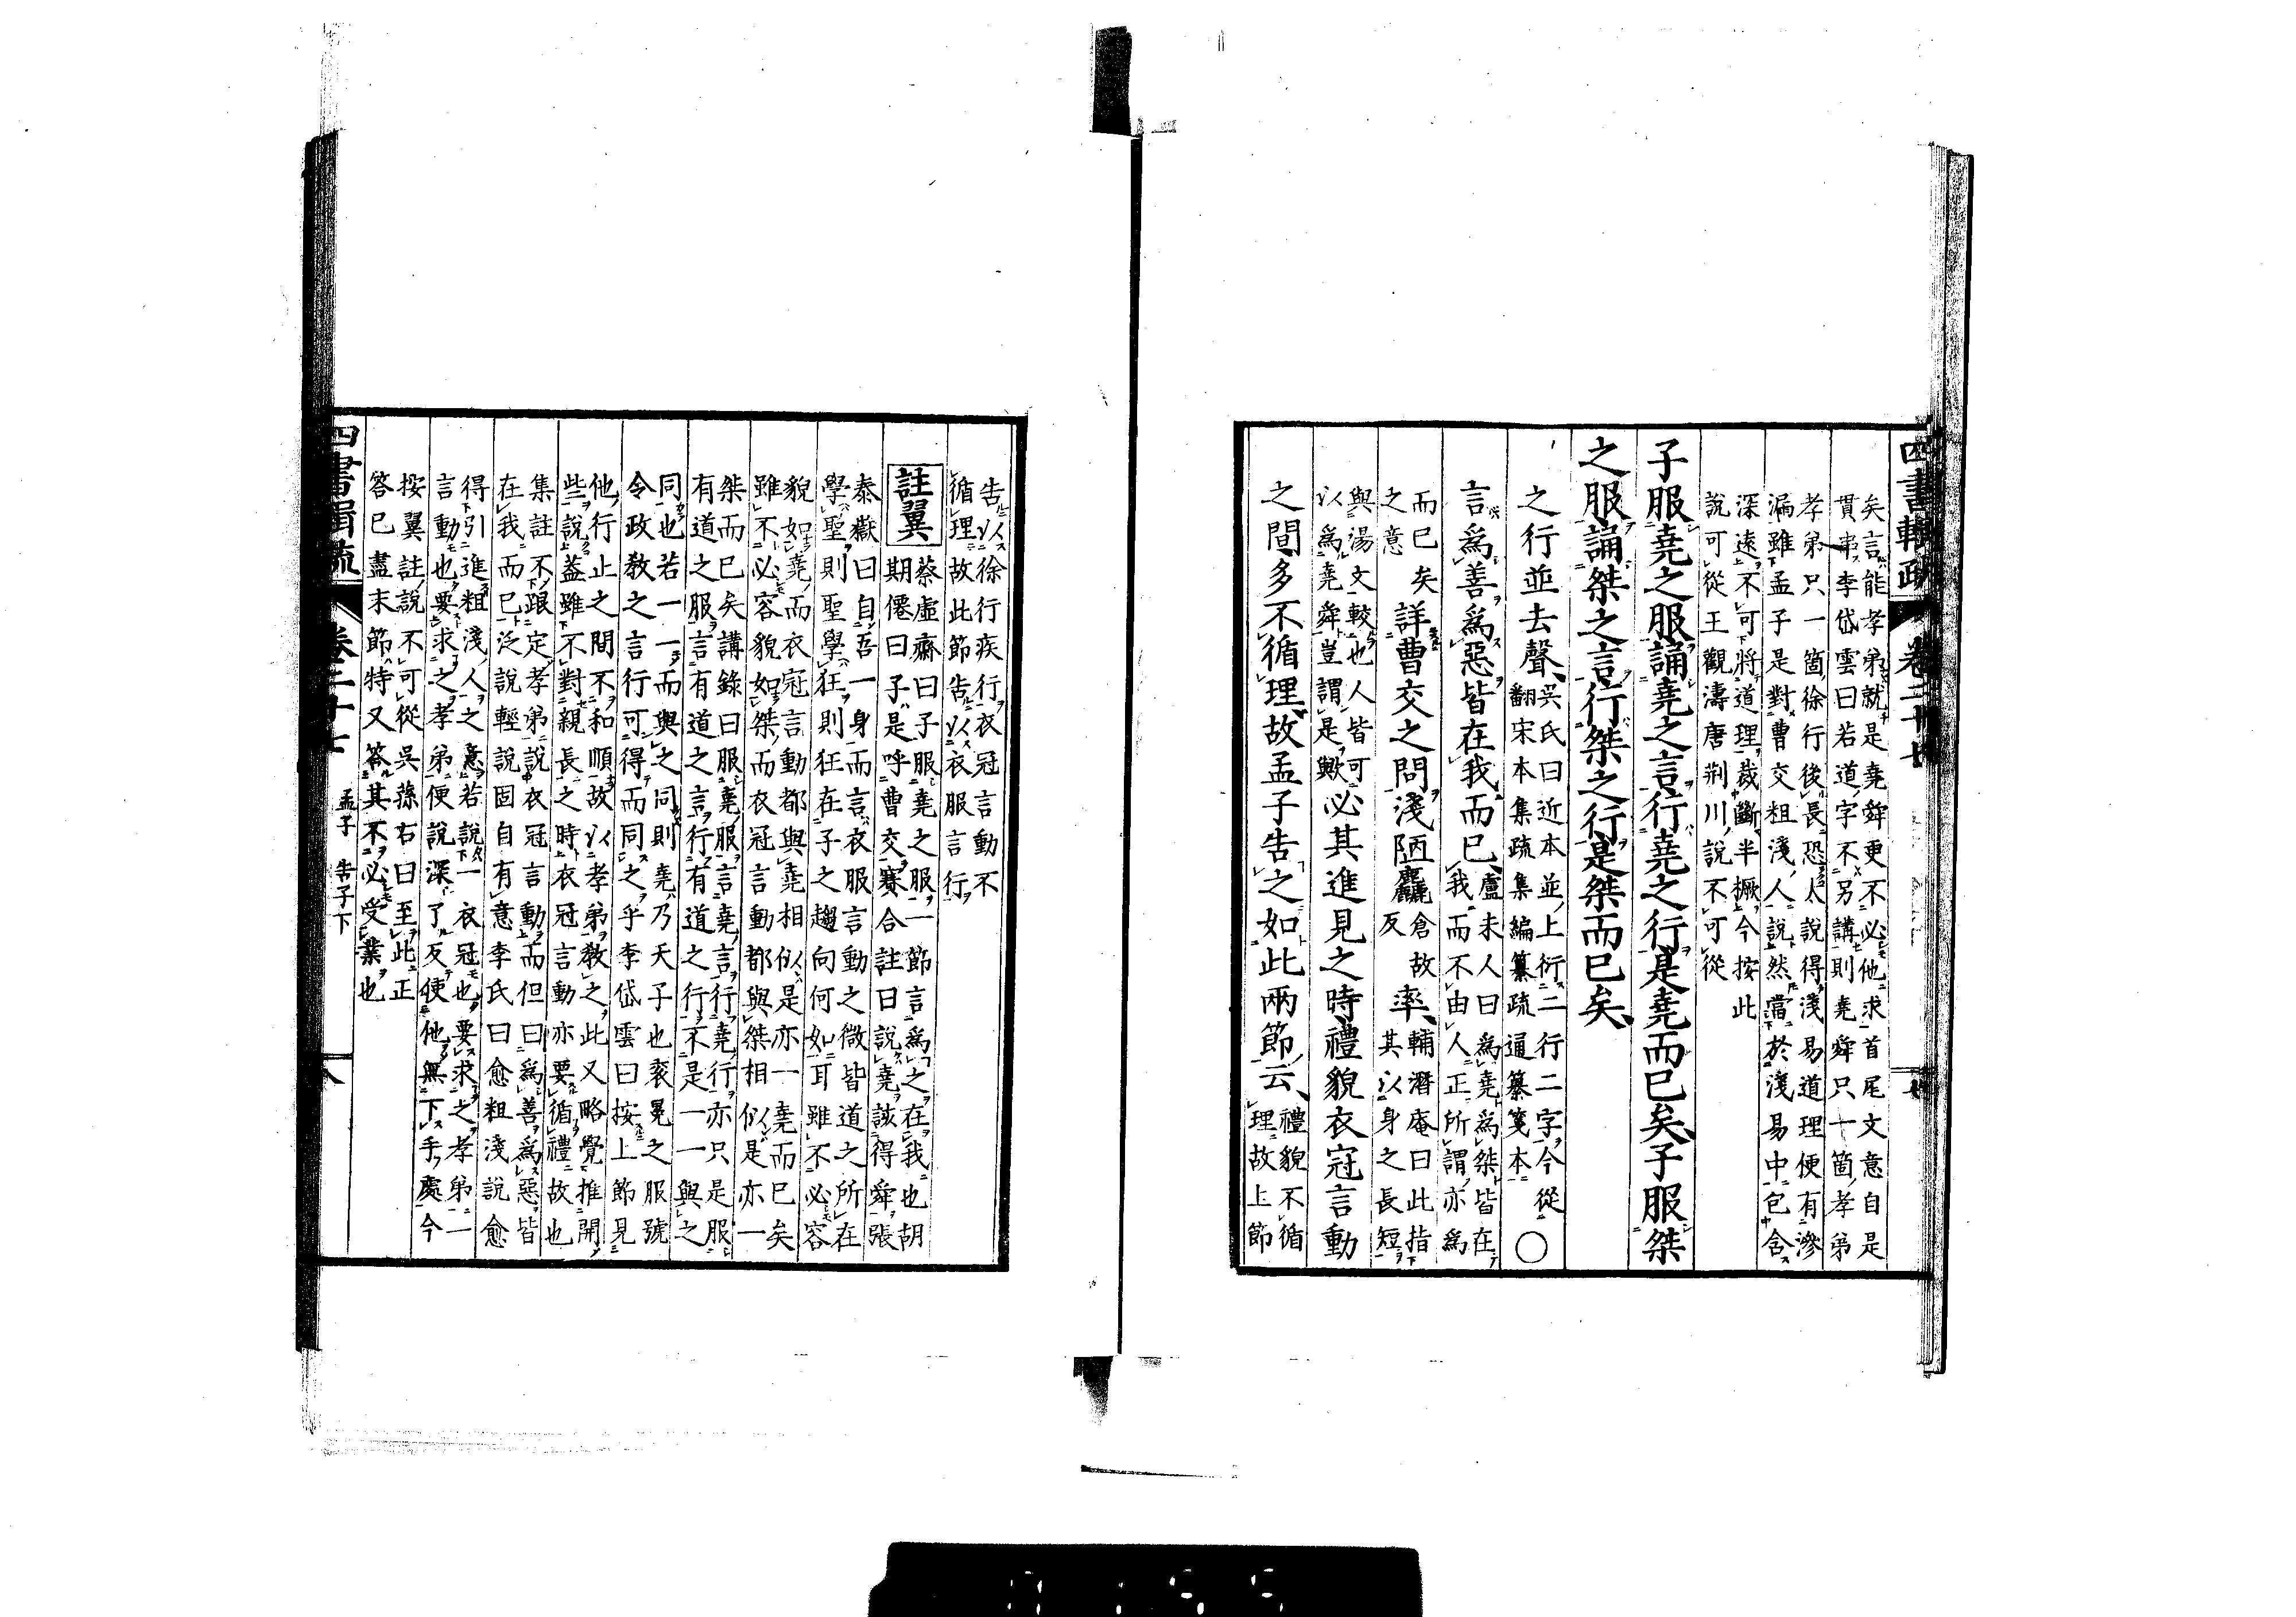 四書輯疏 卷二十七
矣言能孝弟就是堯舜更不必他求首尾文意自是
貫串李岱雲曰若道字不另講則堯舜只十箇孝弟
孝弟只一箇徐行後長恐太說得淺易道理便有滲
漏雖孟子是對曹交粗淺人說然當於淺易中包含
深遠不可將道理裁斷半橛上今按此
說可從王觀濤唐荆川說不可從
子服堯之服誦堯之言行堯之行是堯而已矣子服桀
之服誦桀之言行桀之行是桀而已矣
之行並去聲
吳氏曰近本並上衍二行二字今從
翻宋本集疏集編纂疏通纂箋本
○
言爲善爲惡皆在我而已
盧未人曰爲堯爲桀皆在
我而不由人正所謂亦爲
而已矣
之意
詳曹交之問淺陋麤
倉故
反
率
輔潛庵曰此指
其以身之長短
與湯文較也人皆可
以爲堯舜豈謂是歟
必其進見之時禮貌衣冠言動
之間多不循理故孟子告之如此兩節云
禮貌不循
理故上節
告以徐行疾行衣冠言動不
循理故此節告以衣服言行
註翼
蔡虛齋曰子服堯之服一節言爲之在我也胡
期僊曰子是呼曹交賽合註曰說堯該得舜張
泰嶽曰自吾一身而言衣服言動之微皆道之所在
學聖則聖學狂則狂在子之趨向何如耳雖不必容
貌如堯而衣冠言動都與堯相似是亦一堯而已矣
雖不必容貌如桀而衣冠言動都與桀相似是亦一
桀而已矣講錄曰服堯服言堯言行堯行亦只是服
有道之服言有道之言行有道之行不是一一與之
同也若一一而與之同則堯乃天子也袞冕之服號
令政敎之言行可得而同之乎李岱雲曰按上節見
他行止之間不和順故以孝弟敎之此又略覺推開
些說益雖不對親長之時衣冠言動亦要循禮故也
集註不跟定孝弟說衣冠言動而但曰爲善爲惡皆
在我而已泛說輕說固自有意李氏曰愈粗淺說愈
得引進粗淺人之意若說一衣冠也要求之孝弟一
言動也要求之孝弟便說深了反使他無下手處今
按翼註說不可從吳蓀右曰至此正
答已盡末節特又答其不必受業也
四書輯疏 卷二十七 孟子 告子下 八